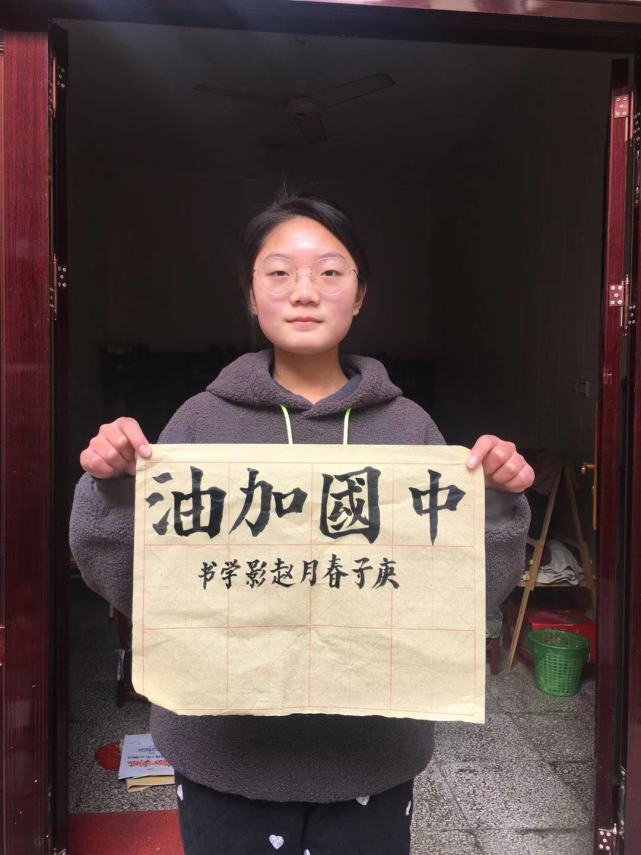 中國加油
庚子春月赵影学书